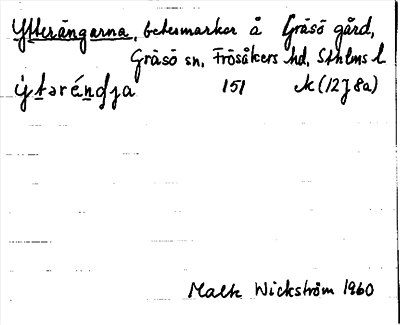 Ytterängarna, betesmarker å Gräsö gård,
Gräsö sn, Frösåkers hd, Sthlms l
ýtəréndja 151 K (12J8a)
Malte Wickström 1960